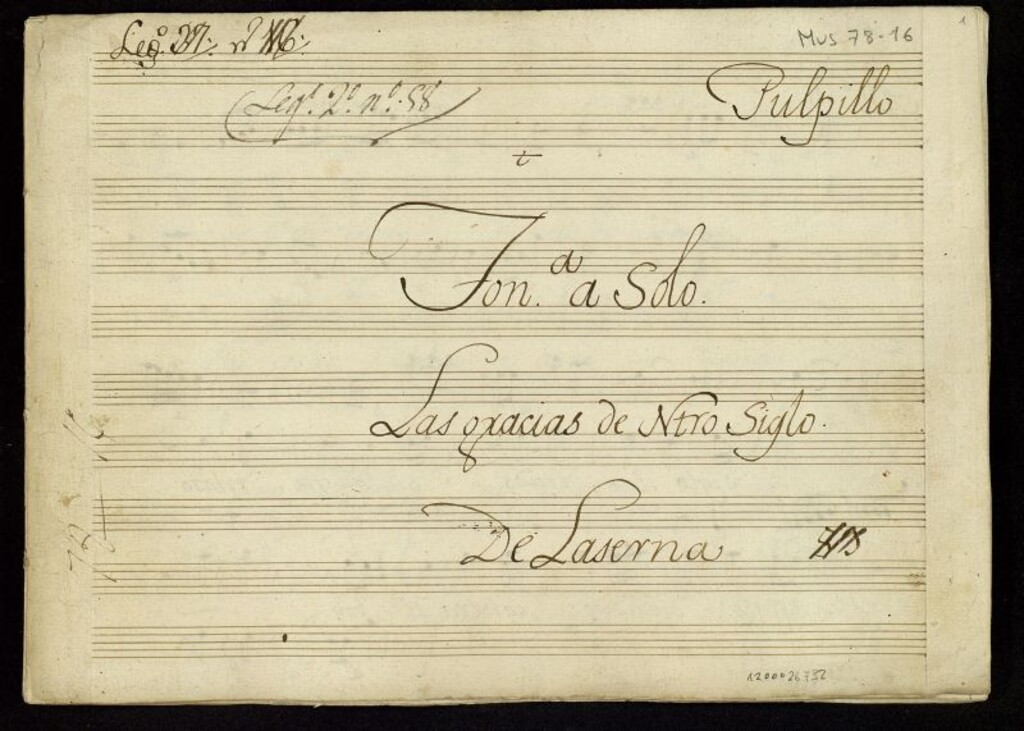 Leg.º nº
Mus 78-16
1
Legº. 2º nº. 58
Pulpillo
t
Ton.ª a Solo.
Las gracias de Ntro Siglo.
De Laserna
1200026732